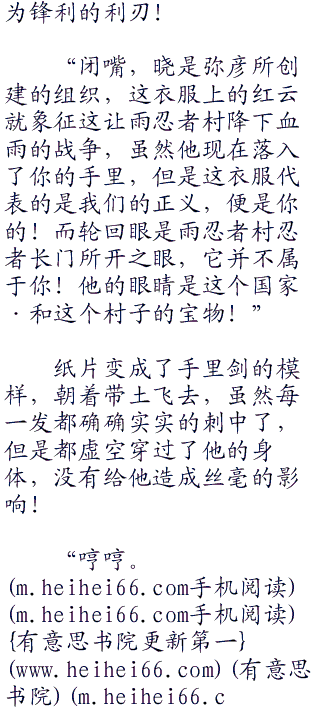 为锋利的利刃！
“闭嘴，晓是弥彦所创
建的组织，这衣服上的红云
就象征这让雨忍者村降下血
雨的战争，虽然他现在落入
了你的手里，但是这衣服代
表的是我们的正义，便是你
的！而轮回眼是雨忍者村忍
者长门所开之眼，它并不属
于你！他的眼睛是这个国家
·和这个村子的宝物！”
纸片变成了手里剑的模
样，朝着带土飞去，虽然每
一发都确确实实的刺中了，
但是都虚空穿过了他的身
体，没有给他造成丝毫的影
响！
“哼哼。
(m.heihei66.com手机阅读)
(m.heihei66.com手机阅读)
{有意思书院更新第一}
(www.heihei66.com) (有意思
书院) (m.heihei66.c